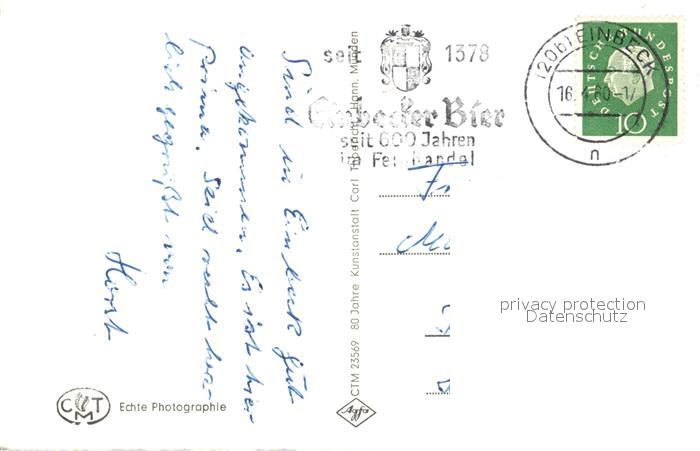 seit 1378
Einbecker Bier
seit 600 Jahren
im Fernhandel
(20b) EINBECK
16.4.60-17
n
DEUTSCHE BUNDESPOST
10
Sind in Einbeck gut
angekommen. Es ist hier
prima. Seid recht herz-
lich gegrüßt von
Horst
CTM 23569 80 Jahre Kunstanstalt Carl Thoericht, Hann. Münden
privacy protection
Datenschutz
CTM
Echte Photographie
Agfa